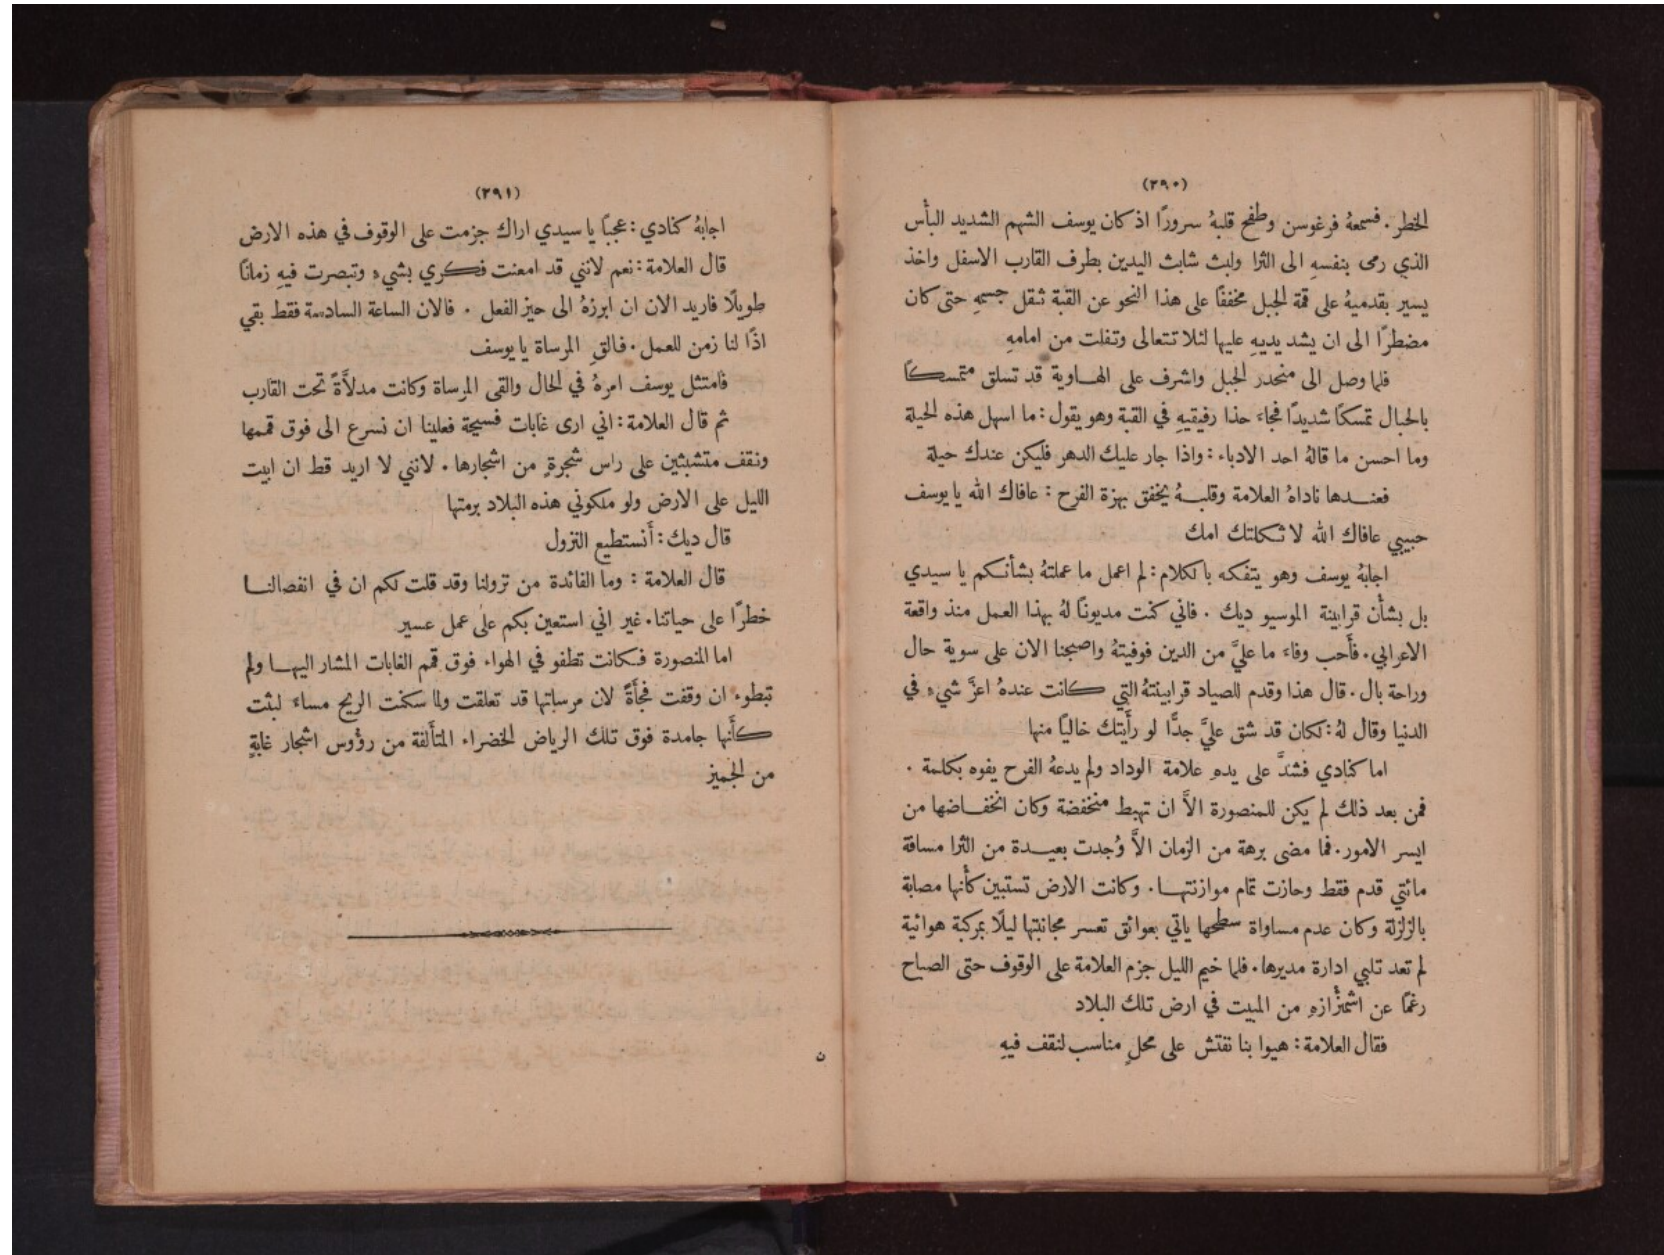 (٢٩٠)
الخطر. فسمعهُ فرغوسن وطفح قلبهُ سرورًا اذ كان يوسف الشهم الشديد البأس
الذي رمى بنفسهِ الى الثرا ولبث شابث اليدين بطرف القارب الاسفل واخذ
يسير بقدميهُ على قمة الجبل مخففًا على هذا النحو عن القبة ثقل جسمهِ حتى كان
مضطرًا الى ان يشد يديهِ عليها لئلا تتعالى وتفلت من امامهِ
فلما وصل الى منحدر الجبل واشرف على الهاوية قد تسلق متمسكًا
بالحبال تمسكًا شديدًا فجاءَ حذا رفيقيهِ في القبة وهو يقول: ما اسهل هذه الحيلة
وما احسن ما قالهُ احد الادباء: واذا جار عليك الدهر فليكن عندك حيلة
فعندها ناداهُ العلامة وقلبهُ يخفق بهزة الفرح: عافاك الله يا يوسف
حبيبي عافاك الله لا ثكلتك امك
اجابهُ يوسف وهو يتفكه بالكلام: لم اعمل ما عملتهُ بشأنكم يا سيدي
بل بشأن قرابينة الموسيو ديك. فاني كنت مديونًا لهُ بهذا العمل منذ واقعة
الاعرابي. فأحب وفاءَ ما عليَّ من الدين فوفيتهُ واصبحنا الان على سوية حال
وراحة بال. قال هذا وقدم للصياد قرابينتهُ التي كانت عندهُ اعزَّ شيءٍ في
الدنيا وقال لهُ: لكان قد شق عليَّ جدًّا لو رأيتك خاليًا منها
اما كنادي فشدَّ على يدهِ علامة الوداد ولم يدعهُ الفرح يفوه بكلمة.
فمن بعد ذلك لم يكن للمنصورة الاَّ ان تهبط منخفضة وكان انخفاضها من
ايسر الامور. فما مضى برهة من الزمان الاَّ وُجدت بعيدة من الثرا مسافة
مائتي قدم فقط وحازت تمام موازنتها. وكانت الارض تستبين كأنها مصابة
بالزلزلة وكان عدم مساواة سطحها ياتي بعوائق تعسر مجانبتها ليلًا بمركبة هوائية
لم تعد تلبي ادارة مديرها. فلما خيم الليل جزم العلامة على الوقوف حتى الصباح
رغمًا عن اشمئزازهِ من المبيت في ارض تلك البلاد
فقال العلامة: هيوا بنا نفتش على محلٍ مناسب لنقف فيهِ
(٢٩١)
اجابهُ كنادي: عجبًا يا سيدي اراك جزمت على الوقوف في هذه الارض
قال العلامة: نعم لانني قد امعنت فكري بشيءٍ وتبصرت فيهِ زمانًا
طويلًا فاريد الان ان ابرزهُ الى حيز الفعل. فالان الساعة السادسة فقط بقي
اذًا لنا زمن للعمل. فالقِ المرساة يا يوسف
فامتثل يوسف امرهُ في الحال والقى المرساة وكانت مدلأَةً تحت القارب
ثم قال العلامة: اني ارى غابات فسيحة فعلينا ان نسرع الى فوق قممها
ونقف متشبثين على راس شجرةٍ من اشجارها. لانني لا اريد قط ان ابيت
الليل على الارض ولو ملكوني هذه البلاد برمتها
قال ديك: أنستطيع النزول
قال العلامة: وما الفائدة من نزولنا وقد قلت لكم ان في انفصالنا
خطرًا على حياتنا. غير اني استعين بكم على عمل عسير
اما المنصورة فكانت تطفو في الهواء فوق قمم الغابات المشار اليها ولم
تبطوء ان وقفت فجأَةً لان مرساتها قد تعلقت ولما سكنت الريح مساءً لبثت
كأنها جامدة فوق تلك الرياض الخضراء المتألفة من رؤوس اشجار غابةٍ
من الجميز
ن